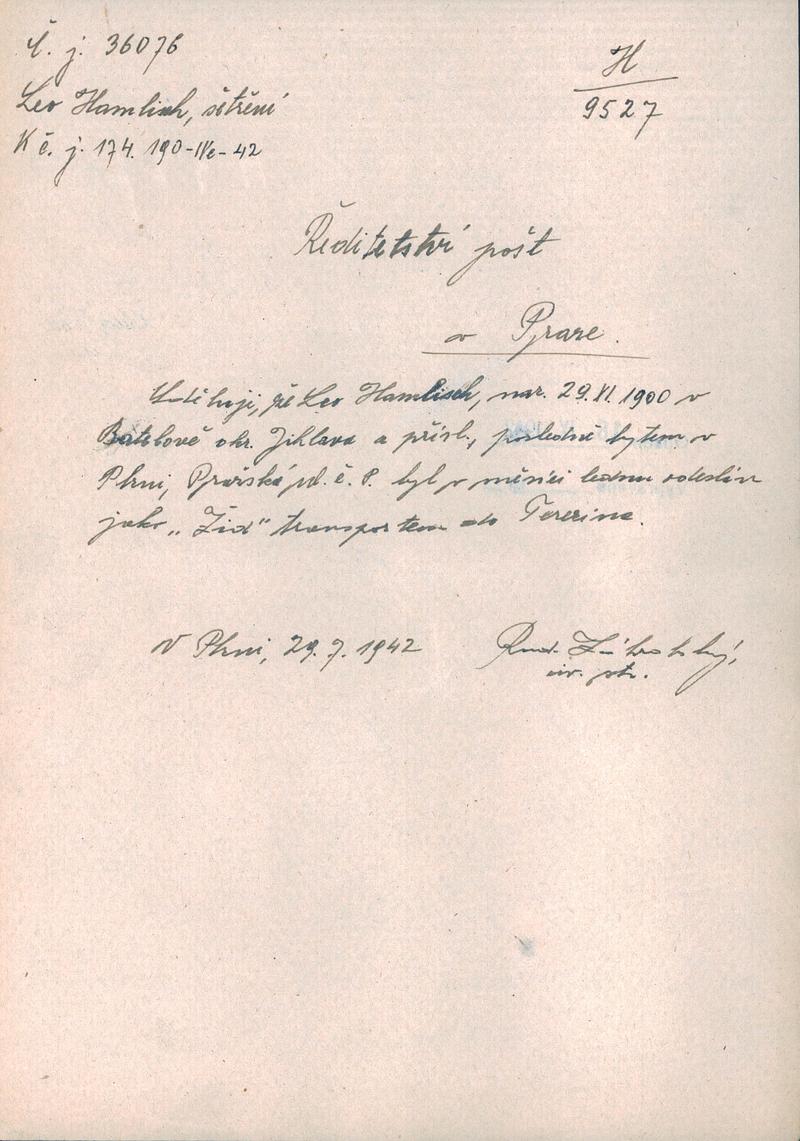 Č. j. 36076
H
9527
Leo Hamlisch, šetření
K č. j. 174.190-IVc-42
Ředitelství pošt
v Praze.
Sděluji, že Leo Hamlisch, nar. 29.XI.1900 v
Batelově okr. Jihlava a přísl., posledně bytem v
Plzni, Pražská ul. č. 8. byl v měsíci lednu odeslán
jako „Žid" transportem do Terezina.
V Plzni, 29.7.1942
Rud.